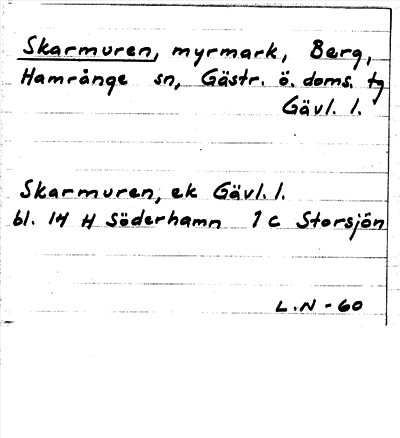 Skarmuren, myrmark, Berg,
Hamrånge sn, Gästr. ö. doms. tg
Gävl. l.
Skarmuren, ek Gävl. l.
bl. 14 H Söderhamn 1 c Storsjön
L.N - 60